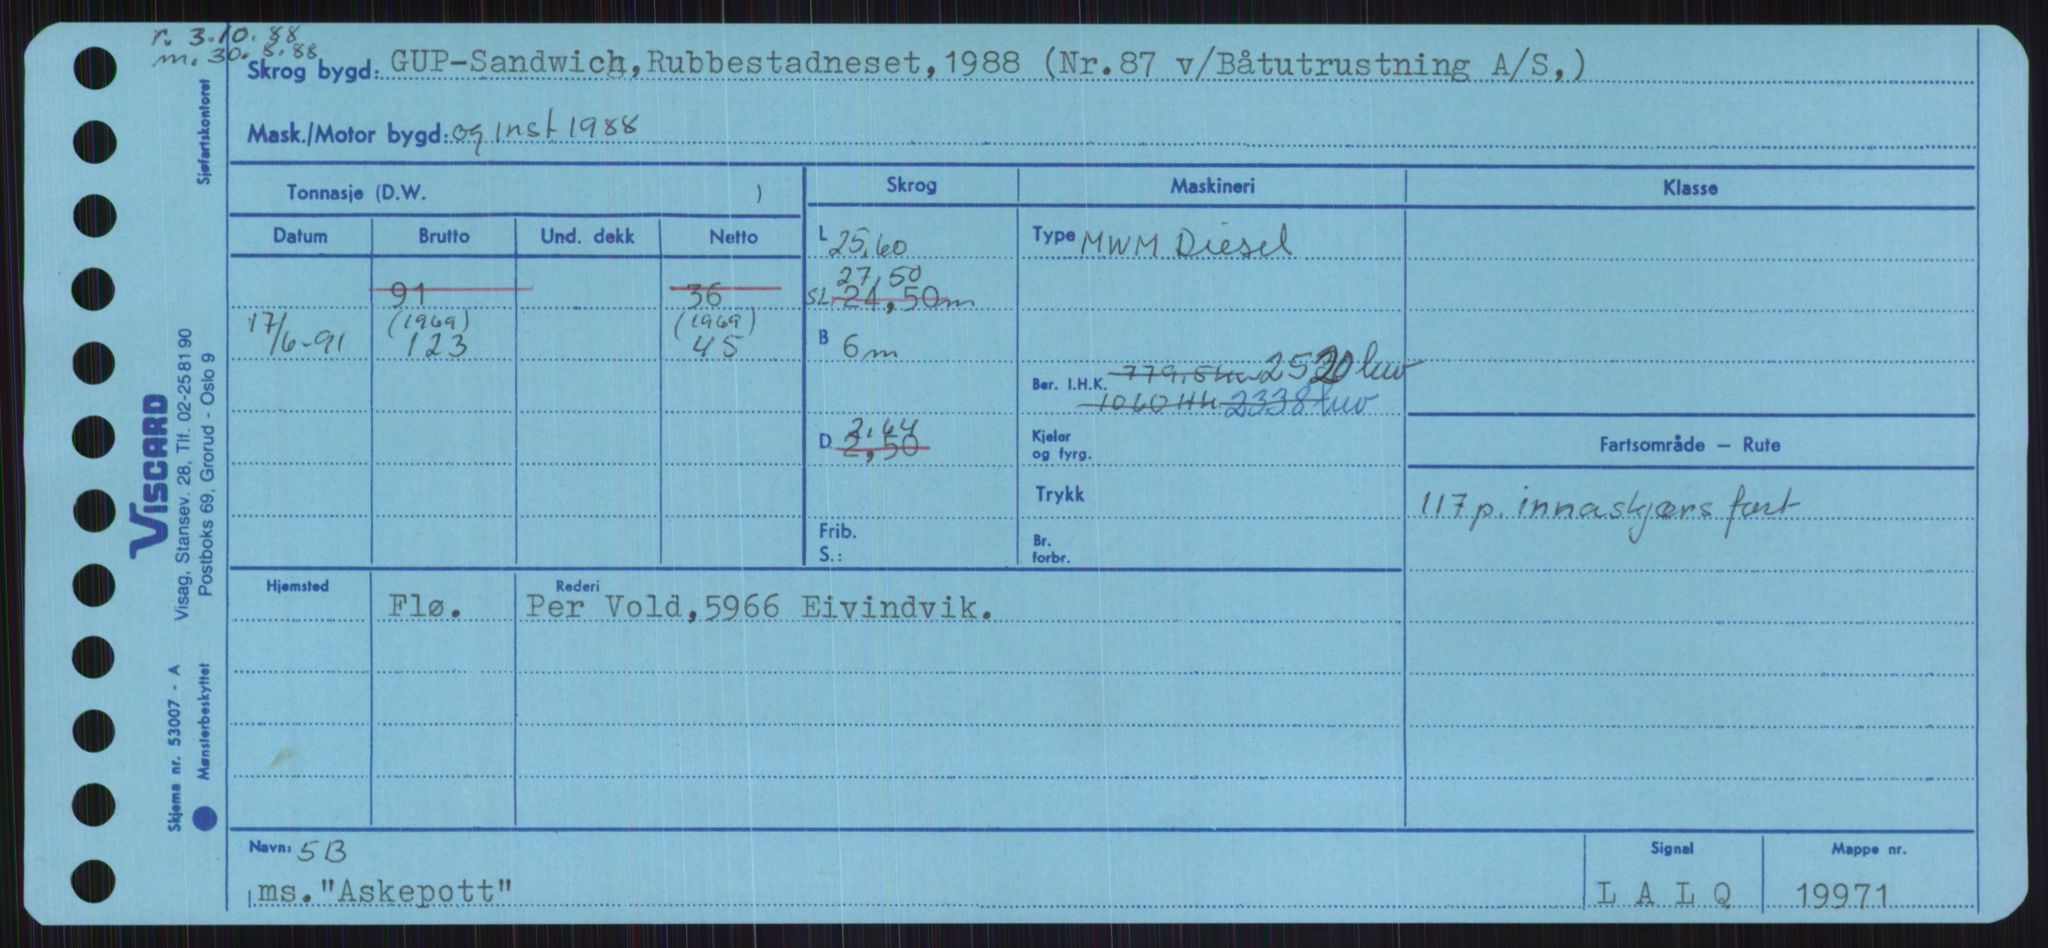 r. 3.10.88
m. 30.8.88
Skrog bygd: GUP-Sandwich, Rubbestadneset, 1988 (Nr. 87 v/Båtutrustning A/S,)
Mask./Motor bygd: og inst 1988
Tonnasje (D.W. )
Skrog Maskineri Klasse
Datum Brutto Und. dekk Netto
L 25,60
Type MWM Diesel
27,50
91 36 SL 24,50m
17/6-91 (1969) 123 (1969) 45
B 6 m
Ber. I.H.K. 779,5 kw 2520 kw
1060 Hk 2338 kw
2,64
D 2,50
Kjelar og fyrg.
Fartsområde — Rute
Trykk
117 p. innaskjærs fart
Frib.
S.:
Br. forbr.
Hjemsted Rederi
Flø. Per Vold, 5966 Eivindvik.
Navn: 5B
ms. "Askepott"
Signal
L A L Q
Mappe nr.
19971
Sjøfartskontoret
VISCARD
Visag, Stansev. 28, Tlf. 02-25 81 90
Postboks 69, Grorud - Oslo 9
Skjema nr. 53007 - A
Mønsterbeskyttet